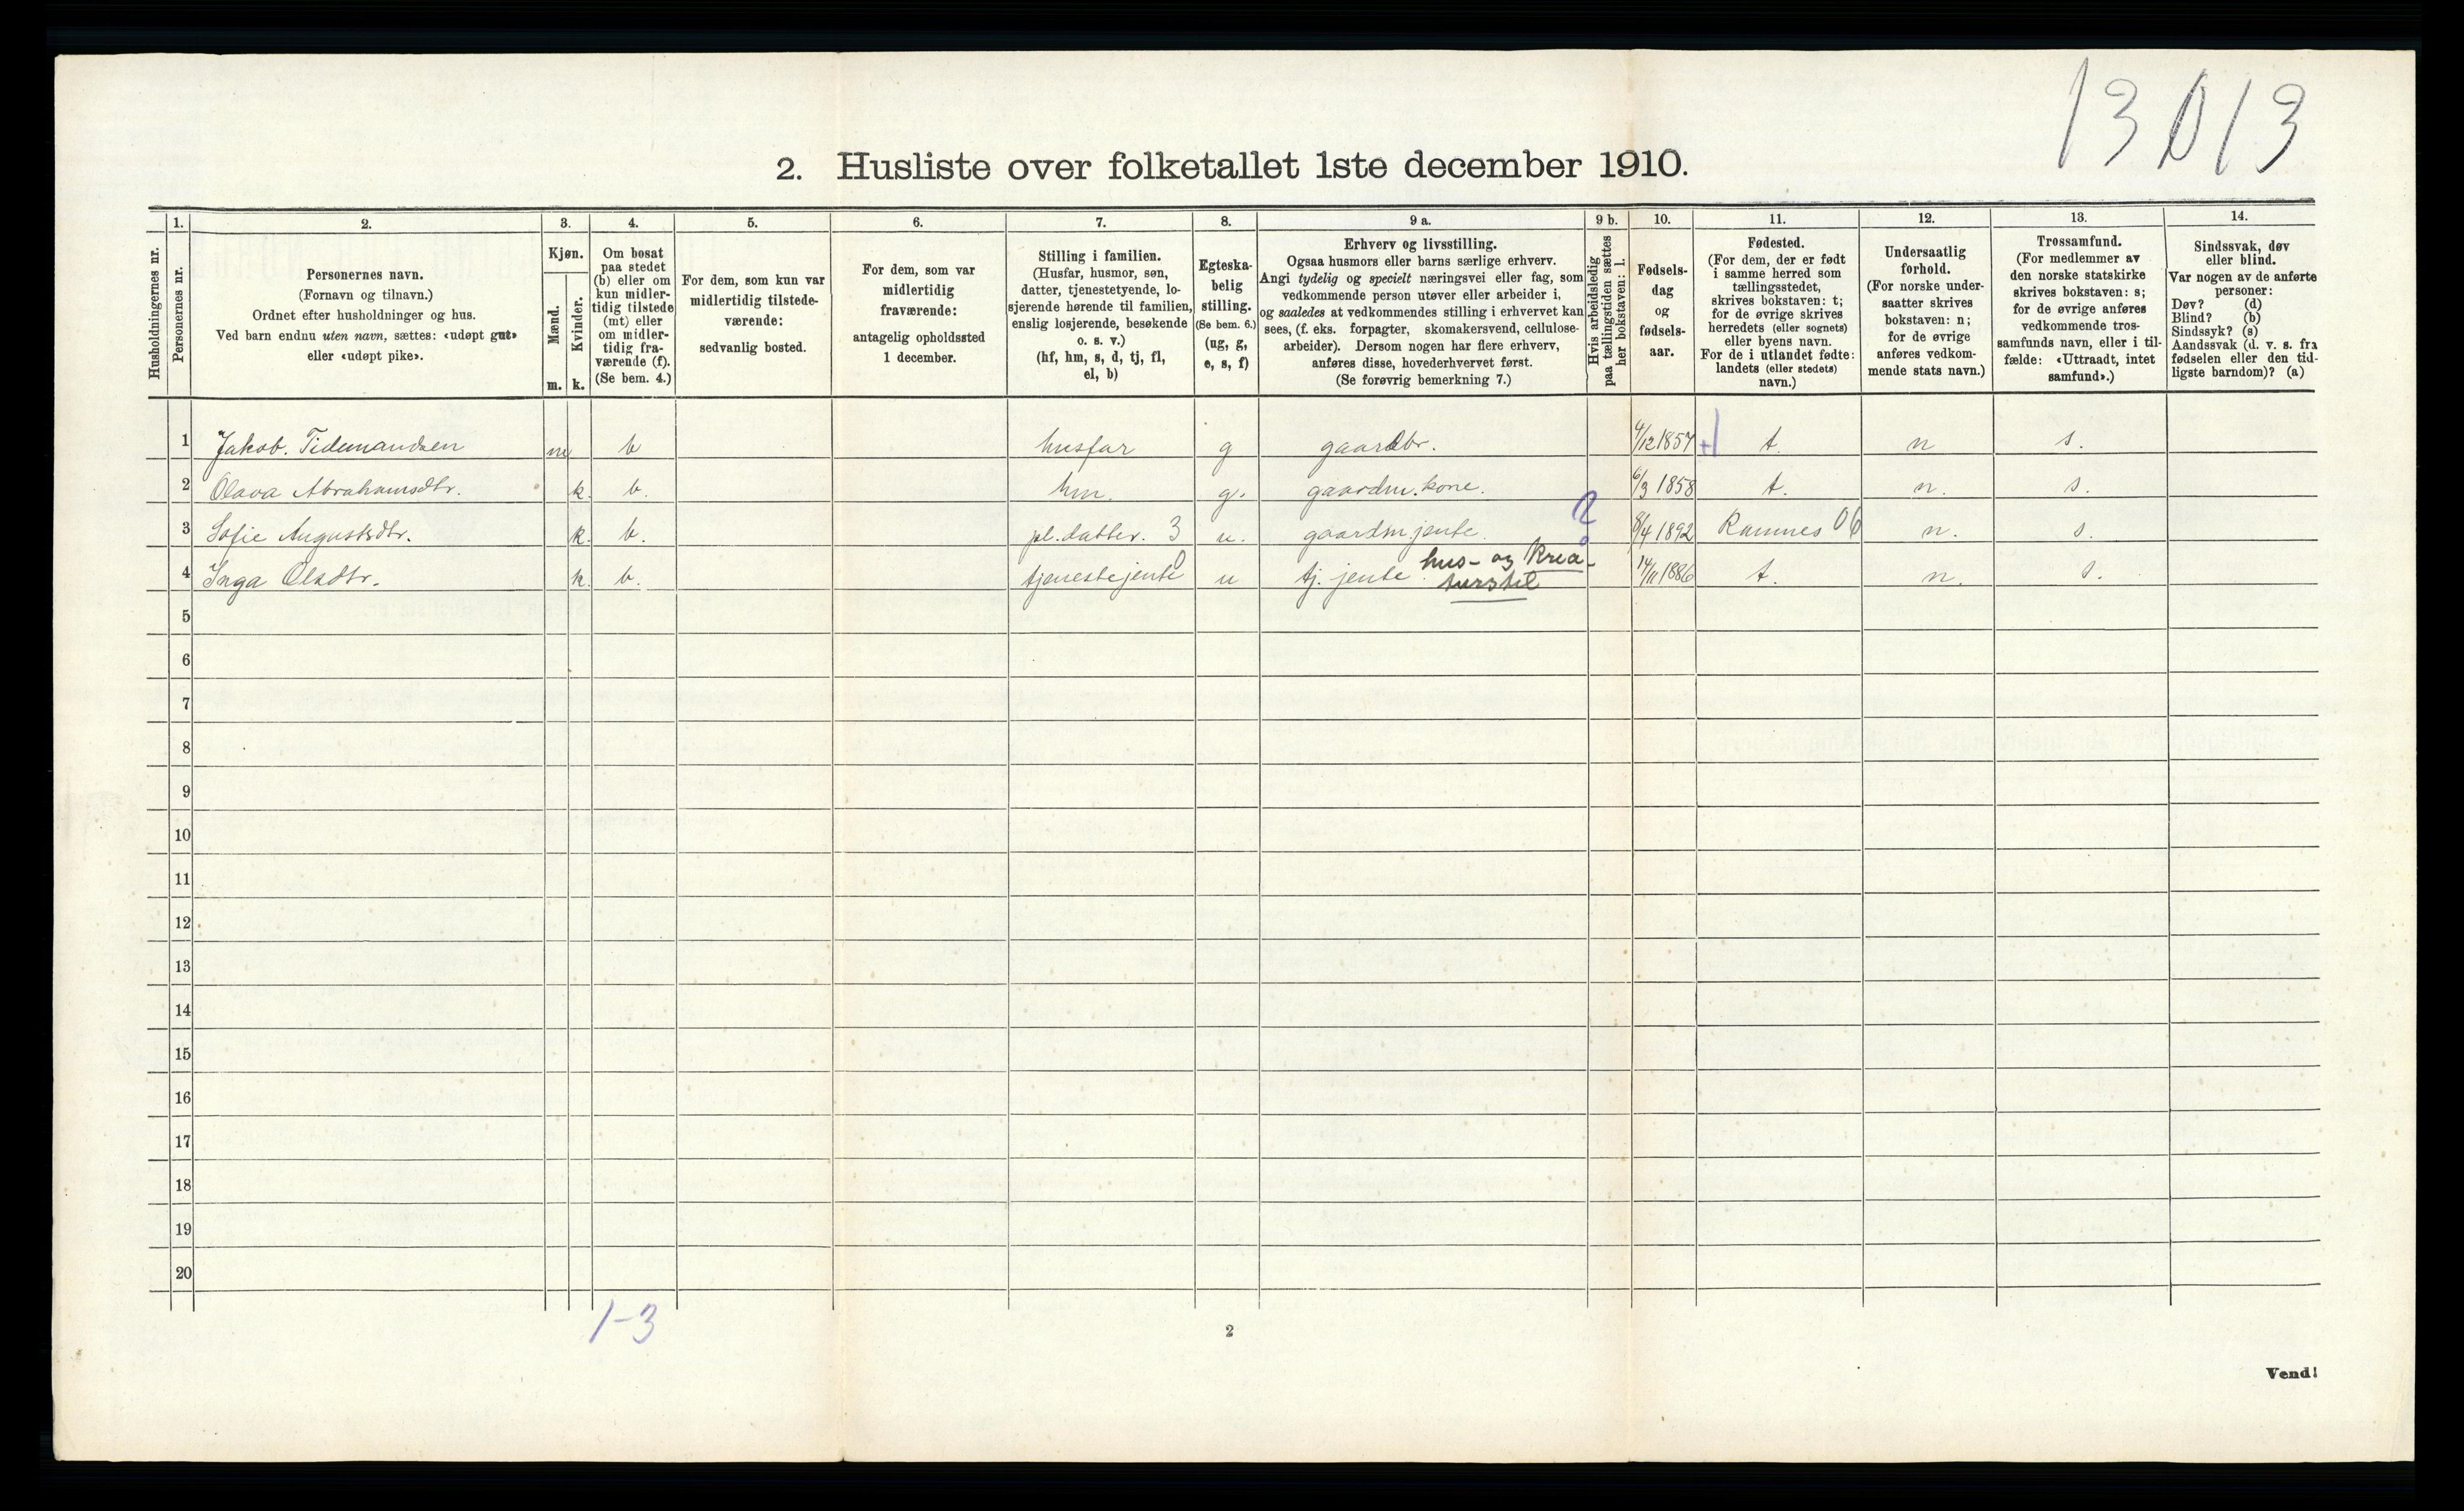 13 13
2. Husliste over folketallet 1ste december 1910.
1. 2. 3. 4. 5. 6. 7. 8. 9 a. 9 b. 10. 11. 12. 13. 14.
Husholdningernes nr.
Personernes nr.
Personernes navn.
(Fornavn og tilnavn.)
Ordnet efter husholdninger og hus.
Ved barn endnu uten navn, sættes: «udøpt gut»
eller «udøpt pike».
Kjøn.
Mænd.
Kvinder.
m. k.
Om bosat
paa stedet
(b) eller om
kun midler-
tidig tilstede
(mt) eller
om midler-
tidig fra-
værende (f).
(Se bem. 4.)
For dem, som kun var
midlertidig tilstede-
værende:
sedvanlig bosted.
For dem, som var
midlertidig
fraværende:
antagelig opholdssted
1 december.
Stilling i familien.
(Husfar, husmor, søn,
datter, tjenestetyende, lo-
sjerende hørende til familien,
enslig losjerende, besøkende
o. s. v.)
(hf, hm, s, d, tj, fl,
el, b)
Egteska-
belig
stilling.
(Se bem. 6.)
(ug, g,
e, s, f)
Erhverv og livsstilling.
Ogsaa husmors eller barns særlige erhverv.
Angi tydelig og specielt næringsvei eller fag, som
vedkommende person utøver eller arbeider i,
og saaledes at vedkommendes stilling i erhvervet kan
sees, (f. eks. forpagter, skomakersvend, cellulose-
arbeider). Dersom nogen har flere erhverv,
anføres disse, hovederhvervet først.
(Se forøvrig bemerkning 7.)
Hvis arbeidsledig
paa tællingstiden sættes
her bokstaven: l.
Fødsels-
dag
og
fødsels-
aar.
Fødested.
(For dem, der er født
i samme herred som
tællingsstedet,
skrives bokstaven: t;
for de øvrige skrives
herredets (eller sognets)
eller byens navn.
For de i utlandet fødte:
landets (eller stedets)
navn.)
Undersaatlig
forhold.
(For norske under-
saatter skrives
bokstaven: n;
for de øvrige
anføres vedkom-
mende stats navn.)
Trossamfund.
(For medlemmer av
den norske statskirke
skrives bokstaven: s;
for de øvrige anføres
vedkommende tros-
samfunds navn, eller i til-
fælde: «Uttraadt, intet
samfund».)
Sindssvak, døv
eller blind.
Var nogen av de anførte
personer:
Døv? (d)
Blind? (b)
Sindssyk? (s)
Aandssvak (d. v. s. fra
fødselen eller den tid-
ligste barndom)? (a)
1 Jakob. Tidemandsen m b husfar g gaardbr. 4/12 1857 t. n s.
2 Olava Abrahamsdtr. k. b. hm. g. gaardm. kone. 6/3 1858 t. n. s.
3 Sofie Augustsdtr. k. b. pl. datter. 3 u. gaardm. jente. 8/4 1892 Ramnes 06 n. s.
4 Inga Olsdtr. k. b. tjenestejente u tj. jente hus- og krea-
turstel 14/11 1886 t. n. s.
5
6
7
8
9
10
11
12
13
14
15
16
17
18
19
20
1-3
2
Vend!